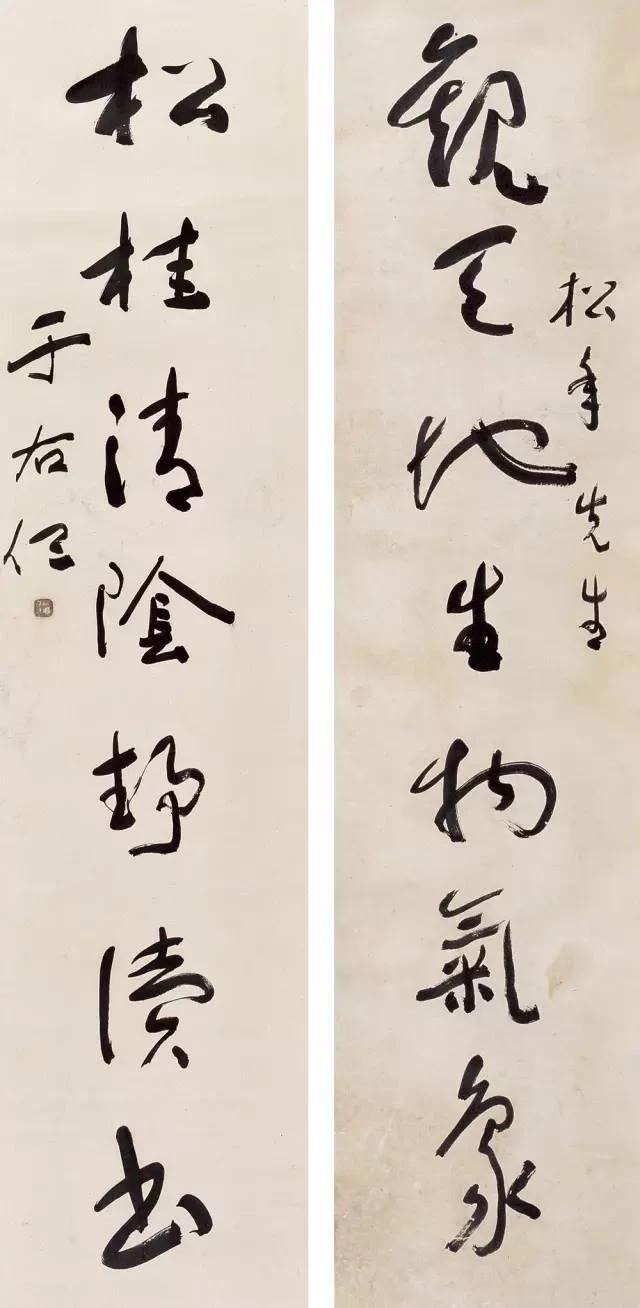 松年先生
觀天地生物氣象
松桂清陰靜讀書
于右任